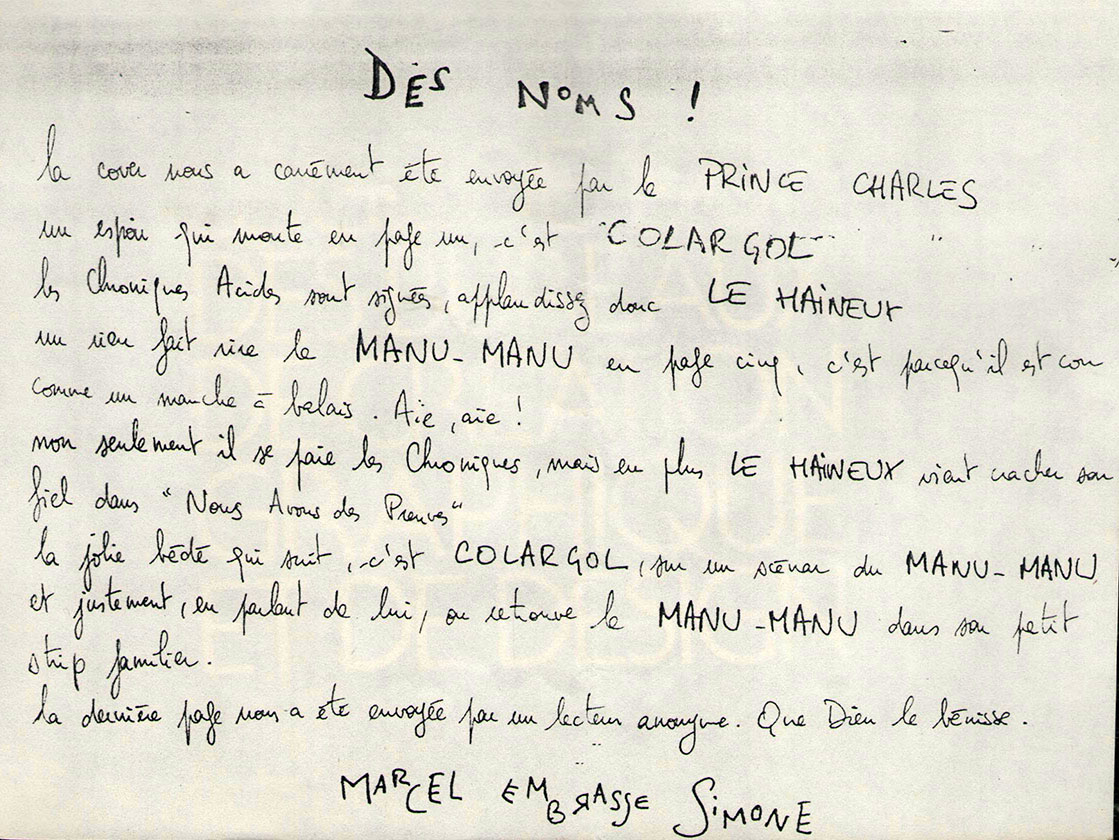 DES NOMS !
la cover nous a carrément été envoyée par le PRINCE CHARLES
un espoir qui monte en page un, c'est COLARGOL
les Chroniques Acides sont signées, applaudissez donc LE HAiNEUX
un rien fait rire le MANU-MANU en page cinq, c'est parcequ'il est con
comme un manche à balais. Aïe, aïe !
non seulement il se paie les Chroniques, mais en plus LE HAiNEUX vient cracher son
fiel dans "Nous Avons des Preuves"
la jolie bédé qui suit, c'est COLARGOL, sur un scénar du MANU-MANU
et justement, en parlant de lui, on retrouve le MANU-MANU dans son petit
strip familier.
la dernière page nous a été envoyée par un lecteur anonyme. Que Dieu le bénisse.
MARCEL EMBRASSE SiMONE